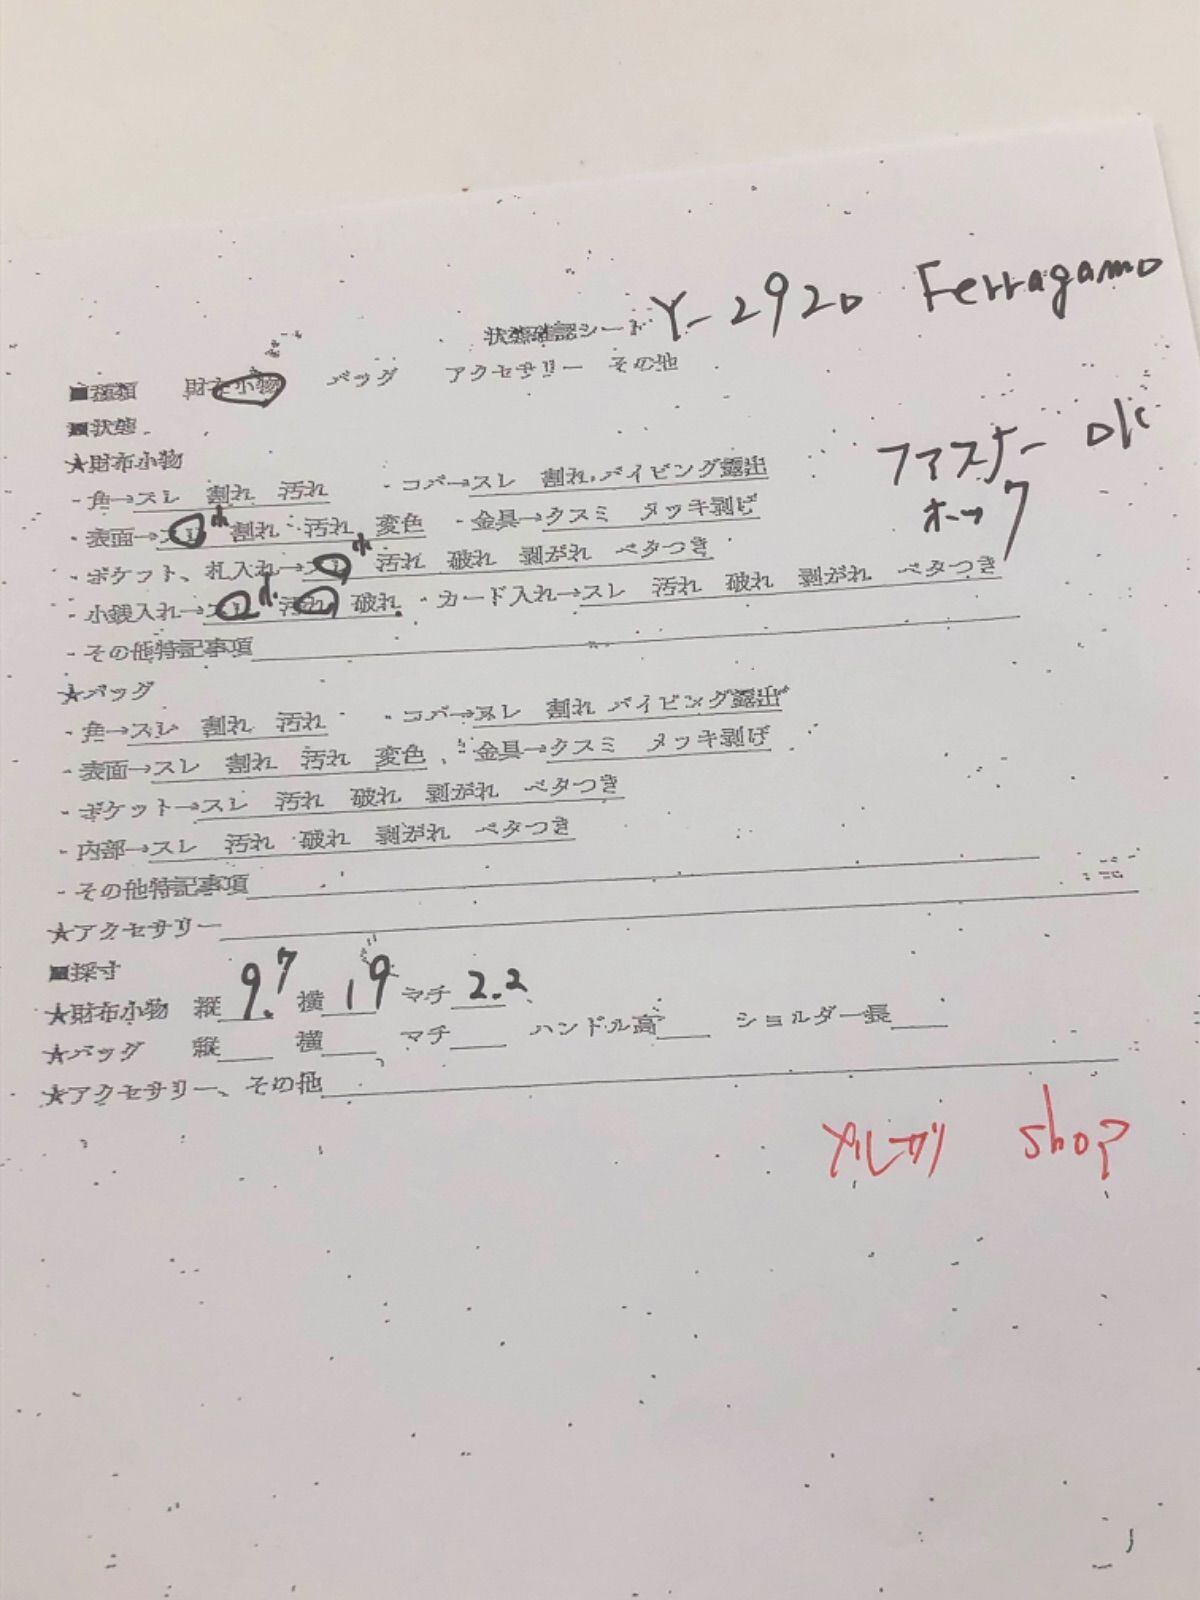 状態確認シート Y-2920 Ferragamo
■種類 財布小物 バッグ アクセサリー その他
■状態
★財布小物
ファスナー OK
・角→スレ 割れ 汚れ ・コバ→スレ 割れ パイピング露出
ホック
・表面→スレ 小 割れ 汚れ 変色 ・金具→クスミ メッキ剥げ
・ポケット、札入れ→スレ 小 汚れ 破れ 剥がれ ベタつき
・小銭入れ→スレ 小 汚れ 破れ ・カード入れ→スレ 汚れ 破れ 剥がれ ベタつき
・その他特記事項
★バッグ
・角→スレ 割れ 汚れ ・コバ→スレ 割れ パイピング露出
・表面→スレ 割れ 汚れ 変色 ・金具→クスミ メッキ剥げ
・ポケット→スレ 汚れ 破れ 剥がれ ベタつき
・内部→スレ 汚れ 破れ 剥がれ ベタつき
・その他特記事項
★アクセサリー
■採寸
★財布小物 縦 9.7 横 19 マチ 2.2
★バッグ 縦 横 マチ ハンドル高 ショルダー長
★アクセサリー、その他
メルカリ shop